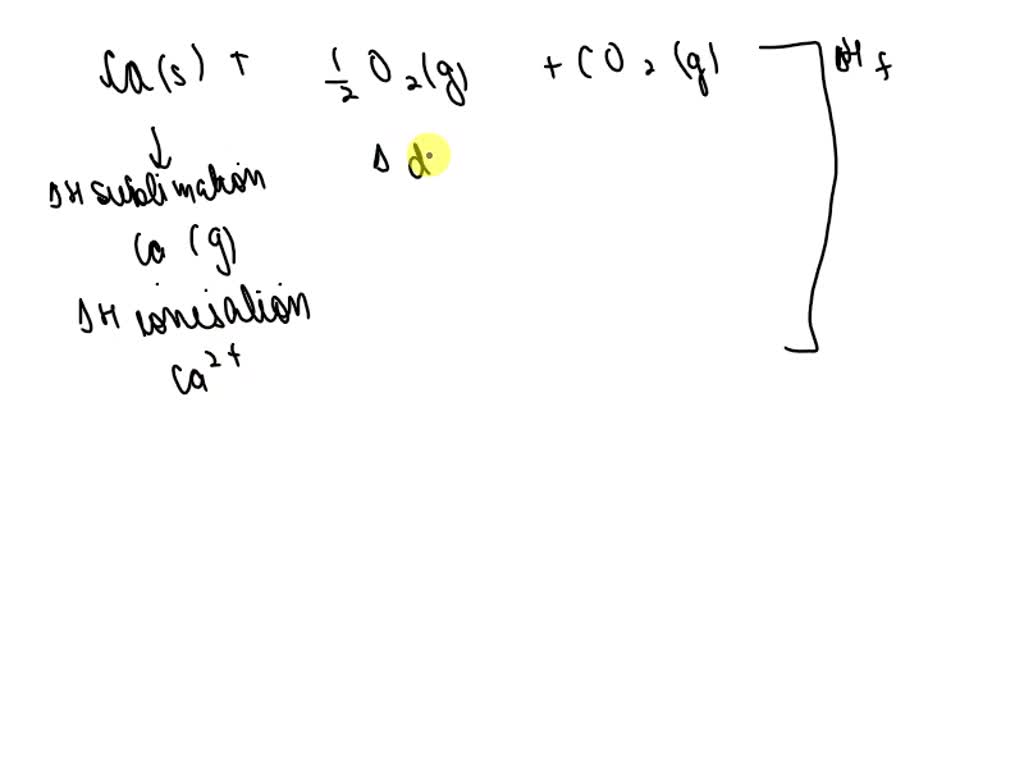 Ca(s) + 1/2 O₂(g) + CO₂(g) ΔHf
↓ Δ d
ΔH sublimation
Ca (g)
ΔH ionisation
Ca²⁺